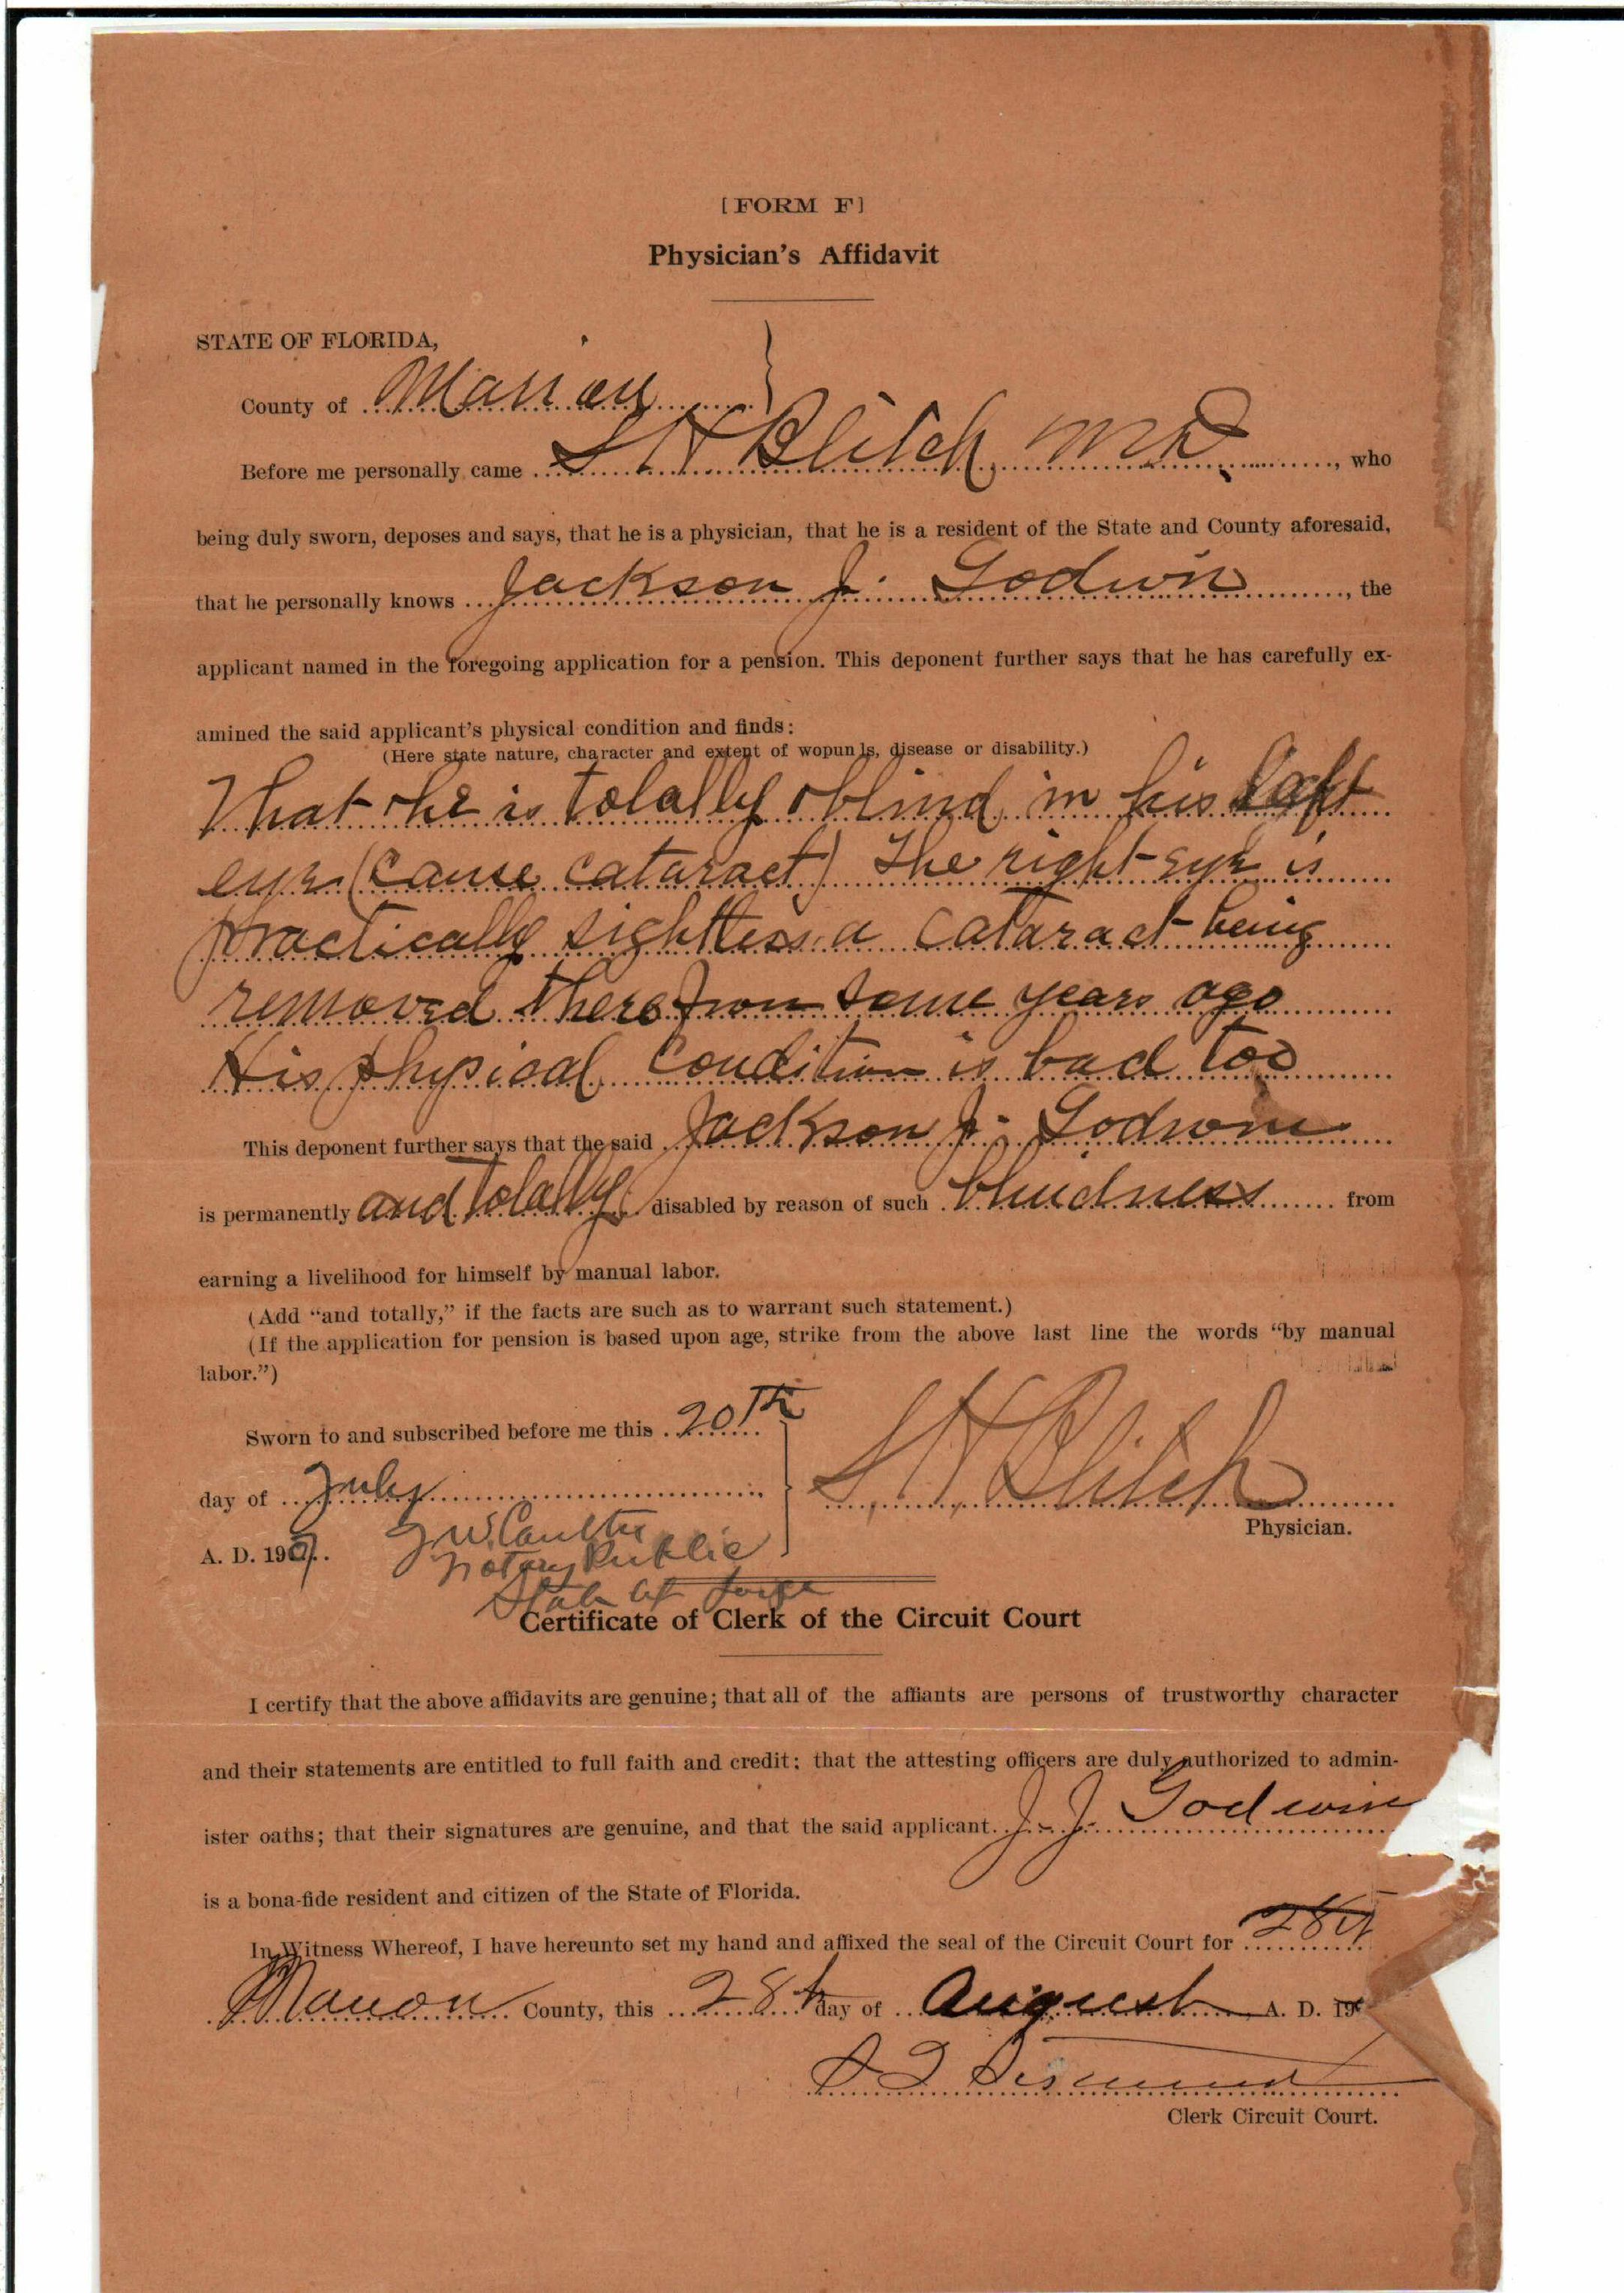 [FORM F]
Physician's Affidavit
STATE OF FLORIDA,
County of Marion
Before me personally came S H Blitch MD, who
being duly sworn, deposes and says, that he is a physician, that he is a resident of the State and County aforesaid,
that he personally knows Jackson J. Godwin, the
applicant named in the foregoing application for a pension. This deponent further says that he has carefully ex-
amined the said applicant's physical condition and finds:
(Here state nature, character and extent of wopun ls, disease or disability.)
That he is totally blind in his left
eye (cause cataract) The right eye is
practically sightless a cataract being
removed therefrom some years ago
His physical condition is bad too
This deponent further says that the said Jackson J. Godwin
is permanently and totally disabled by reason of such blindness from
earning a livelihood for himself by manual labor.
(Add "and totally," if the facts are such as to warrant such statement.)
(If the application for pension is based upon age, strike from the above last line the words "by manual
labor.")
Sworn to and subscribed before me this 20th
day of July
S H Blitch
Physician.
A. D. 1907.
Notary Public
State at large
Certificate of Clerk of the Circuit Court
I certify that the above affidavits are genuine; that all of the affiants are persons of trustworthy character
and their statements are entitled to full faith and credit; that the attesting officers are duly authorized to admin-
ister oaths; that their signatures are genuine, and that the said applicant J. J. Godwin
is a bona-fide resident and citizen of the State of Florida.
In Witness Whereof, I have hereunto set my hand and affixed the seal of the Circuit Court for 28th
Marion County, this 28th day of August A. D. 19
Clerk Circuit Court.